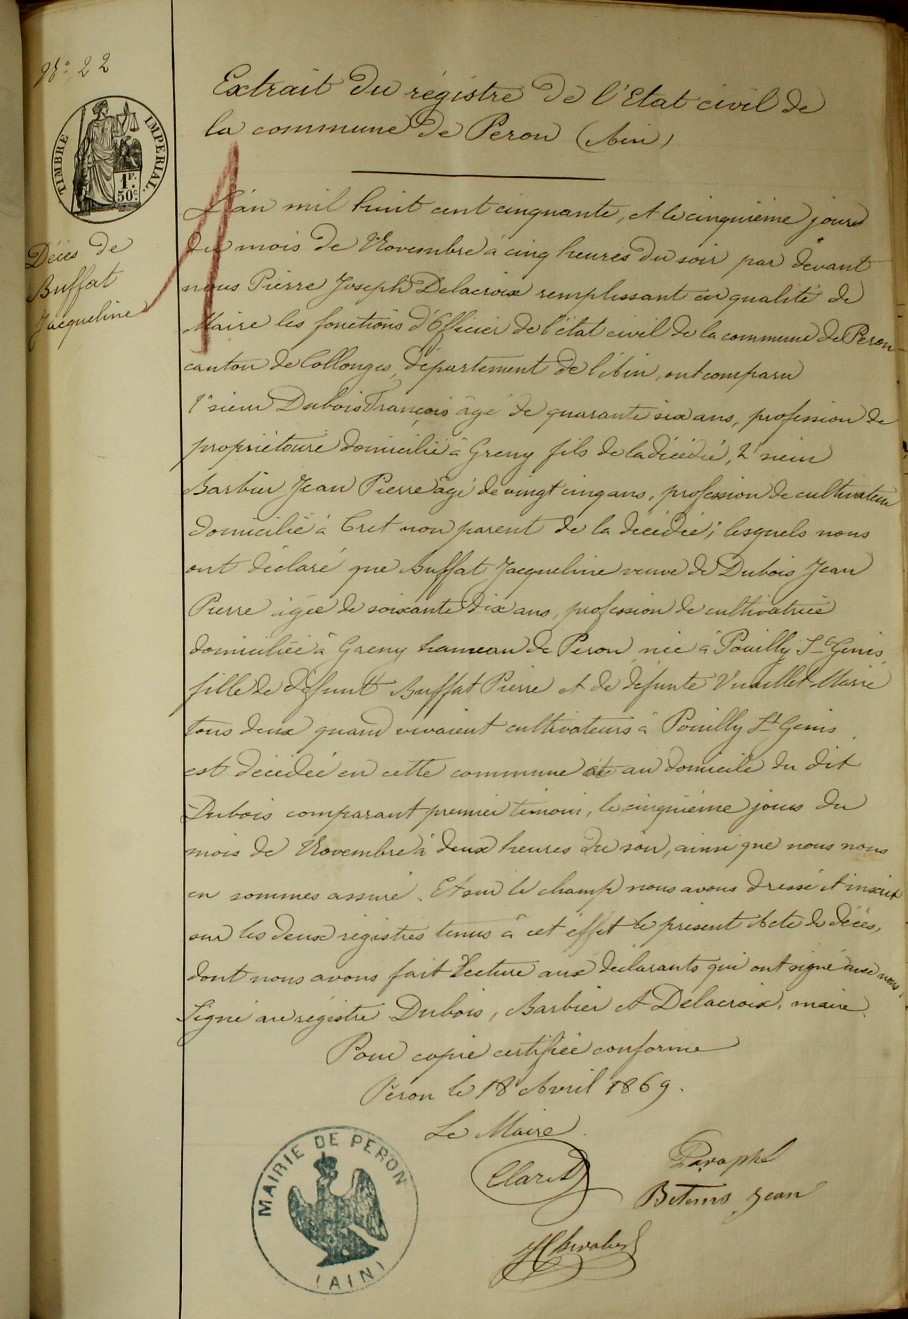 N° 22
TIMBRE IMPERIAL.
1F.
50c.
Décès de
Buffat
Jacqueline
Extrait du régistre de l'Etat civil de
la commune de Peron (Ain)
L'an mil huit cent cinquante, et le cinquième jour
du mois de Novembre à cinq heures du soir par devant
nous Pierre Joseph Delacroix remplissant en qualité de
Maire les fonctions d'Officier de l'état civil de la commune de Peron
canton de Collonges, département de l'Ain, ont comparu
1° sieur Dubois François âgé de quarante six ans, profession de
propriétaire domicilié à Greny fils de la décédée, 2° sieur
Barbier Jean Pierre âgé de vingt cinq ans, profession de cultivateur
domicilié à Cret non parent de la décédée; lesquels nous
ont déclaré que Buffat Jacqueline veuve de Dubois Jean
Pierre âgée de soixante dix ans, profession de cultivatrice
domiciliée à Greny hameau de Peron née à Pouilly St Genis
fille de défunt Buffat Pierre et de défunte Vuaillet Marie
tous deux quand vivaient cultivateurs à Pouilly St Genis
est décédée en cette commune et au domicile du dit
Dubois comparant premier témoin, le cinquième jour du
mois de Novembre à deux heures du soir, ainsi que nous nous
en sommes assuré. Et sur le champ nous avons dressé et inscrit
sur les deux régistres tenus à cet effet le présent Acte de décès,
dont nous avons fait lecture aux déclarants qui ont signé avec nous,
Signé au régistre Dubois, Barbier et Delacroix, maire.
Pour copie certifiée conforme
Péron le 18 Avril 1869.
Le Maire
Claret
Paraphé
Betems Jean
MAIRIE DE PERON
(AIN)